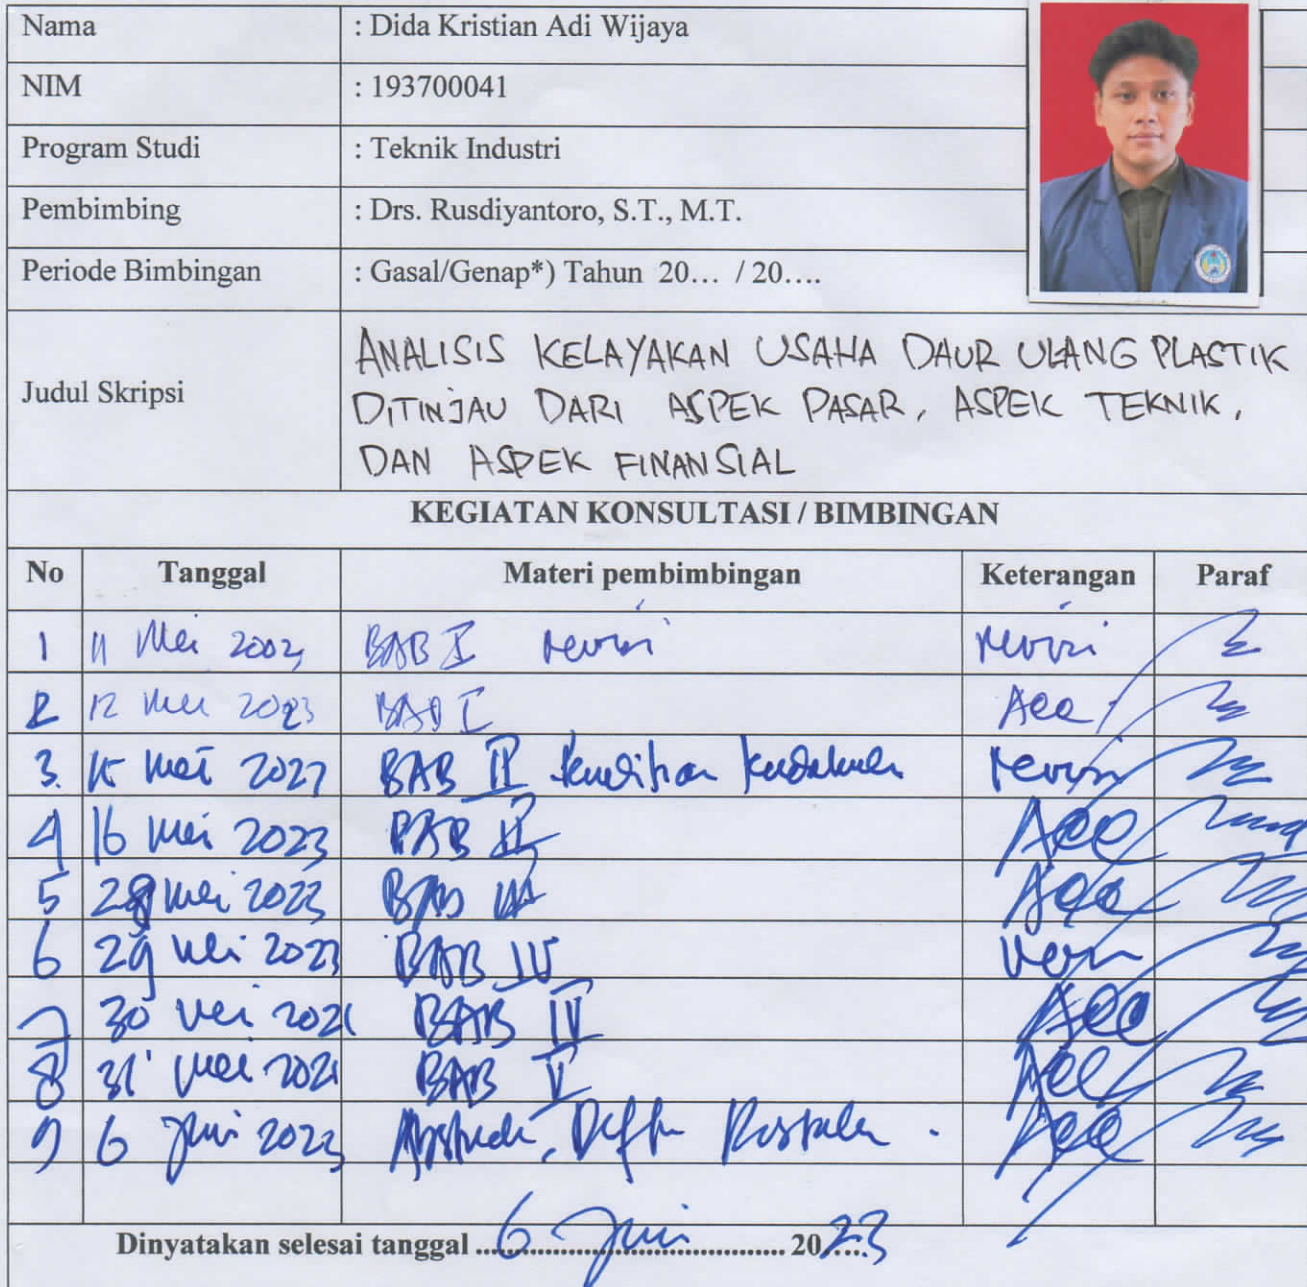 Nama : Dida Kristian Adi Wijaya
NIM : 193700041
Program Studi : Teknik Industri
Pembimbing : Drs. Rusdiyantoro, S.T., M.T.
Periode Bimbingan : Gasal/Genap*) Tahun 20... / 20....
Judul Skripsi
ANALISIS KELAYAKAN USAHA DAUR ULANG PLASTIK
DITINJAU DARI ASPEK PASAR, ASPEK TEKNIK,
DAN ASPEK FINANSIAL
KEGIATAN KONSULTASI / BIMBINGAN
No Tanggal Materi pembimbingan Keterangan Paraf
1 11 Mei BAB I revisi revisi
2 12 Mei 2023 BAB I Acc
3. 15 Mei BAB II revisi
4 16 Mei 2023 BAB II Acc
5 28 Mei 2023 BAB III Acc
6 29 Mei 2023 BAB IV
7 30 Mei BAB IV Acc
8 31 Mei BAB V Acc
9 6 Juni 2023 Acc
Dinyatakan selesai tanggal 6 Juni 2023